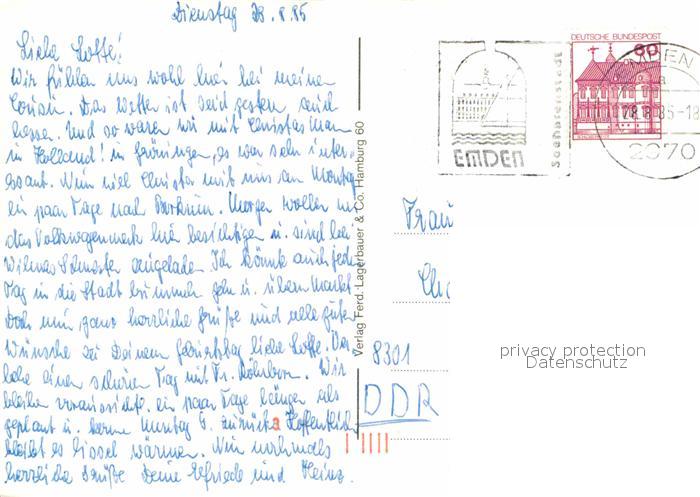 Dienstag 28.8.85
Liebe Lotte!
Wir fühlen uns wohl hier bei meiner
Das Wetter ist seit gestern auch
besser. Und so waren wir mit Christas Mann
in Holland! in Gröningen, es war sehr inter-
essant. Nun will Christa mit uns am Montag
ein paar Tage nach Borkum. Morgen wollen wir
das Volkswagenwerk hier besichtigen u. sind bei
eingeladen. Ich könnte auch jeden
Tag in die Stadt bummeln gehn u. übern Markt.
Doch nun ganz herzliche Grüße und alle guten
Wünsche zu Deinem Geburtstag liebe Lotte.
habe einen schönen Tag mit Fr. Wir
bleiben voraussichtl. ein paar Tage länger als
geplant u. Montag zurück. Hoffentlich
bleibt es bissel wärmer. Nun nochmals
herzliche Grüße Deine Elfriede und Heinz.
Verlag Ferd. Lagerbauer & Co. Hamburg 60
EMDEN
Seehafenstadt
DEUTSCHE BUNDESPOST
60
EMDEN
28.8.85-18
2970
Frau
8301
DDR
privacy protection
Datenschutz